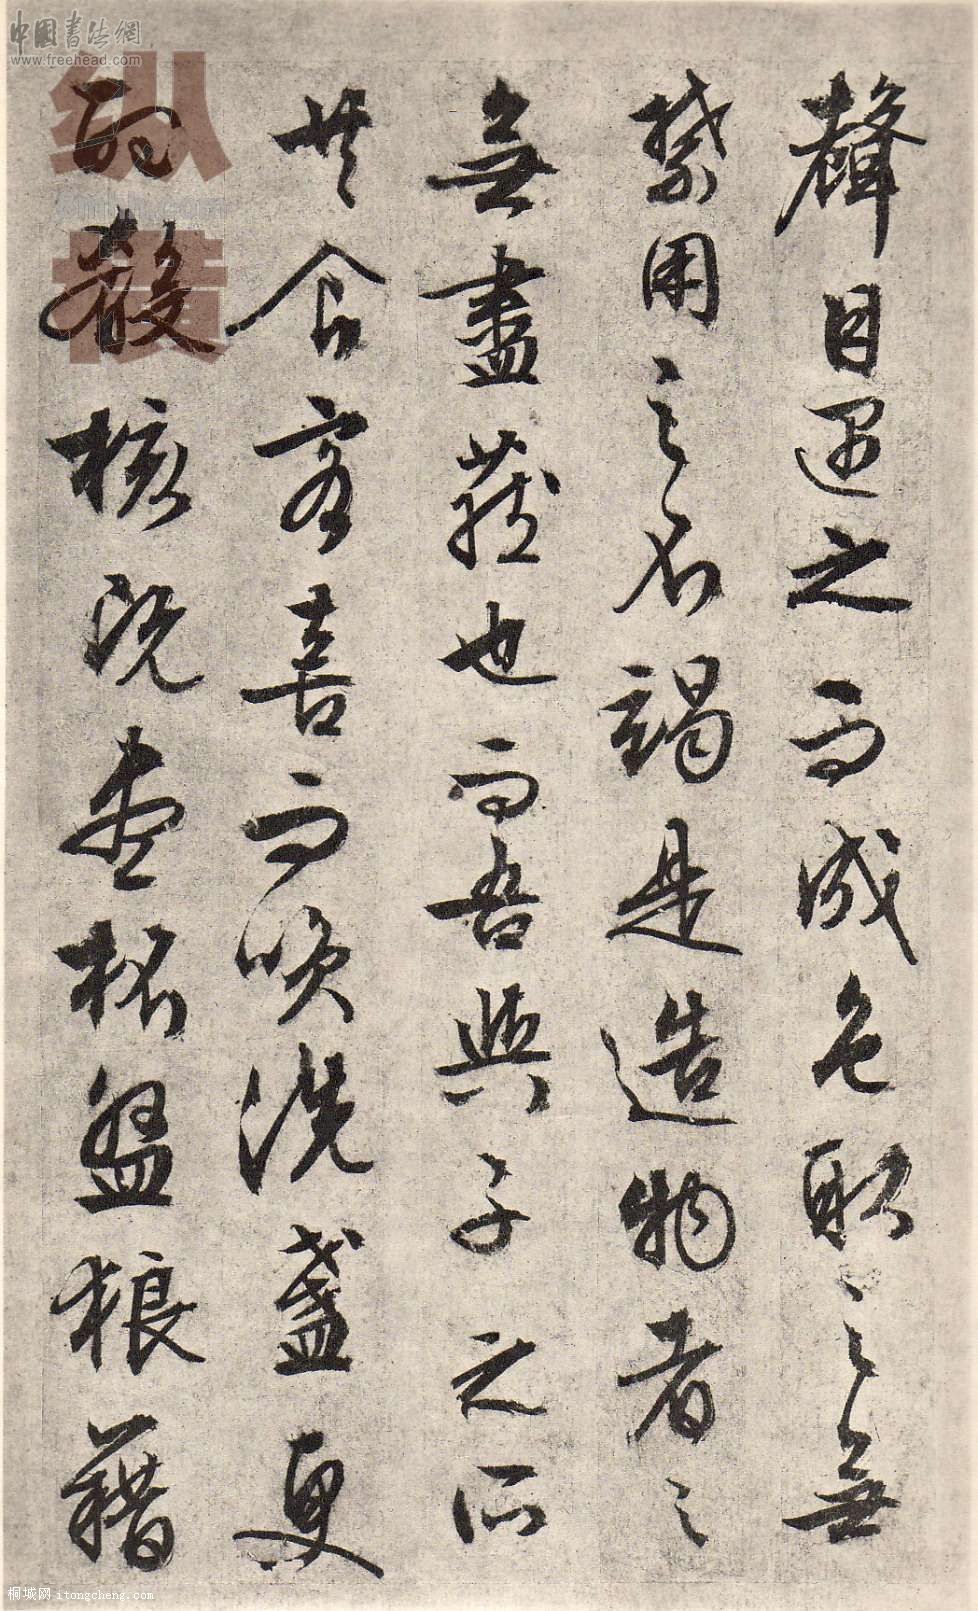 聲目遇之而成色取之無
禁用之不竭是造物者之
無盡藏也而吾與子之所
共食客喜而咲洗盞更
酌殽核既盡杯盤狼藉
中国书法網
www.freehead.com
纵
横
桐城网 itongcheng.com